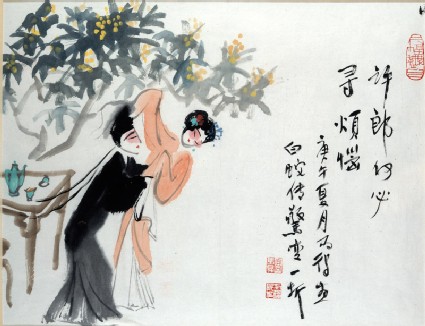 許郎何必
寻煩惱
庚午夏月马得画
白蛇傳驚變一折